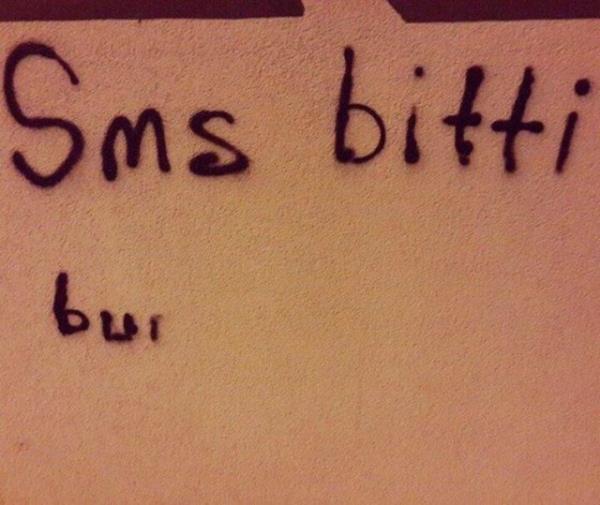 Sms bitti
bur